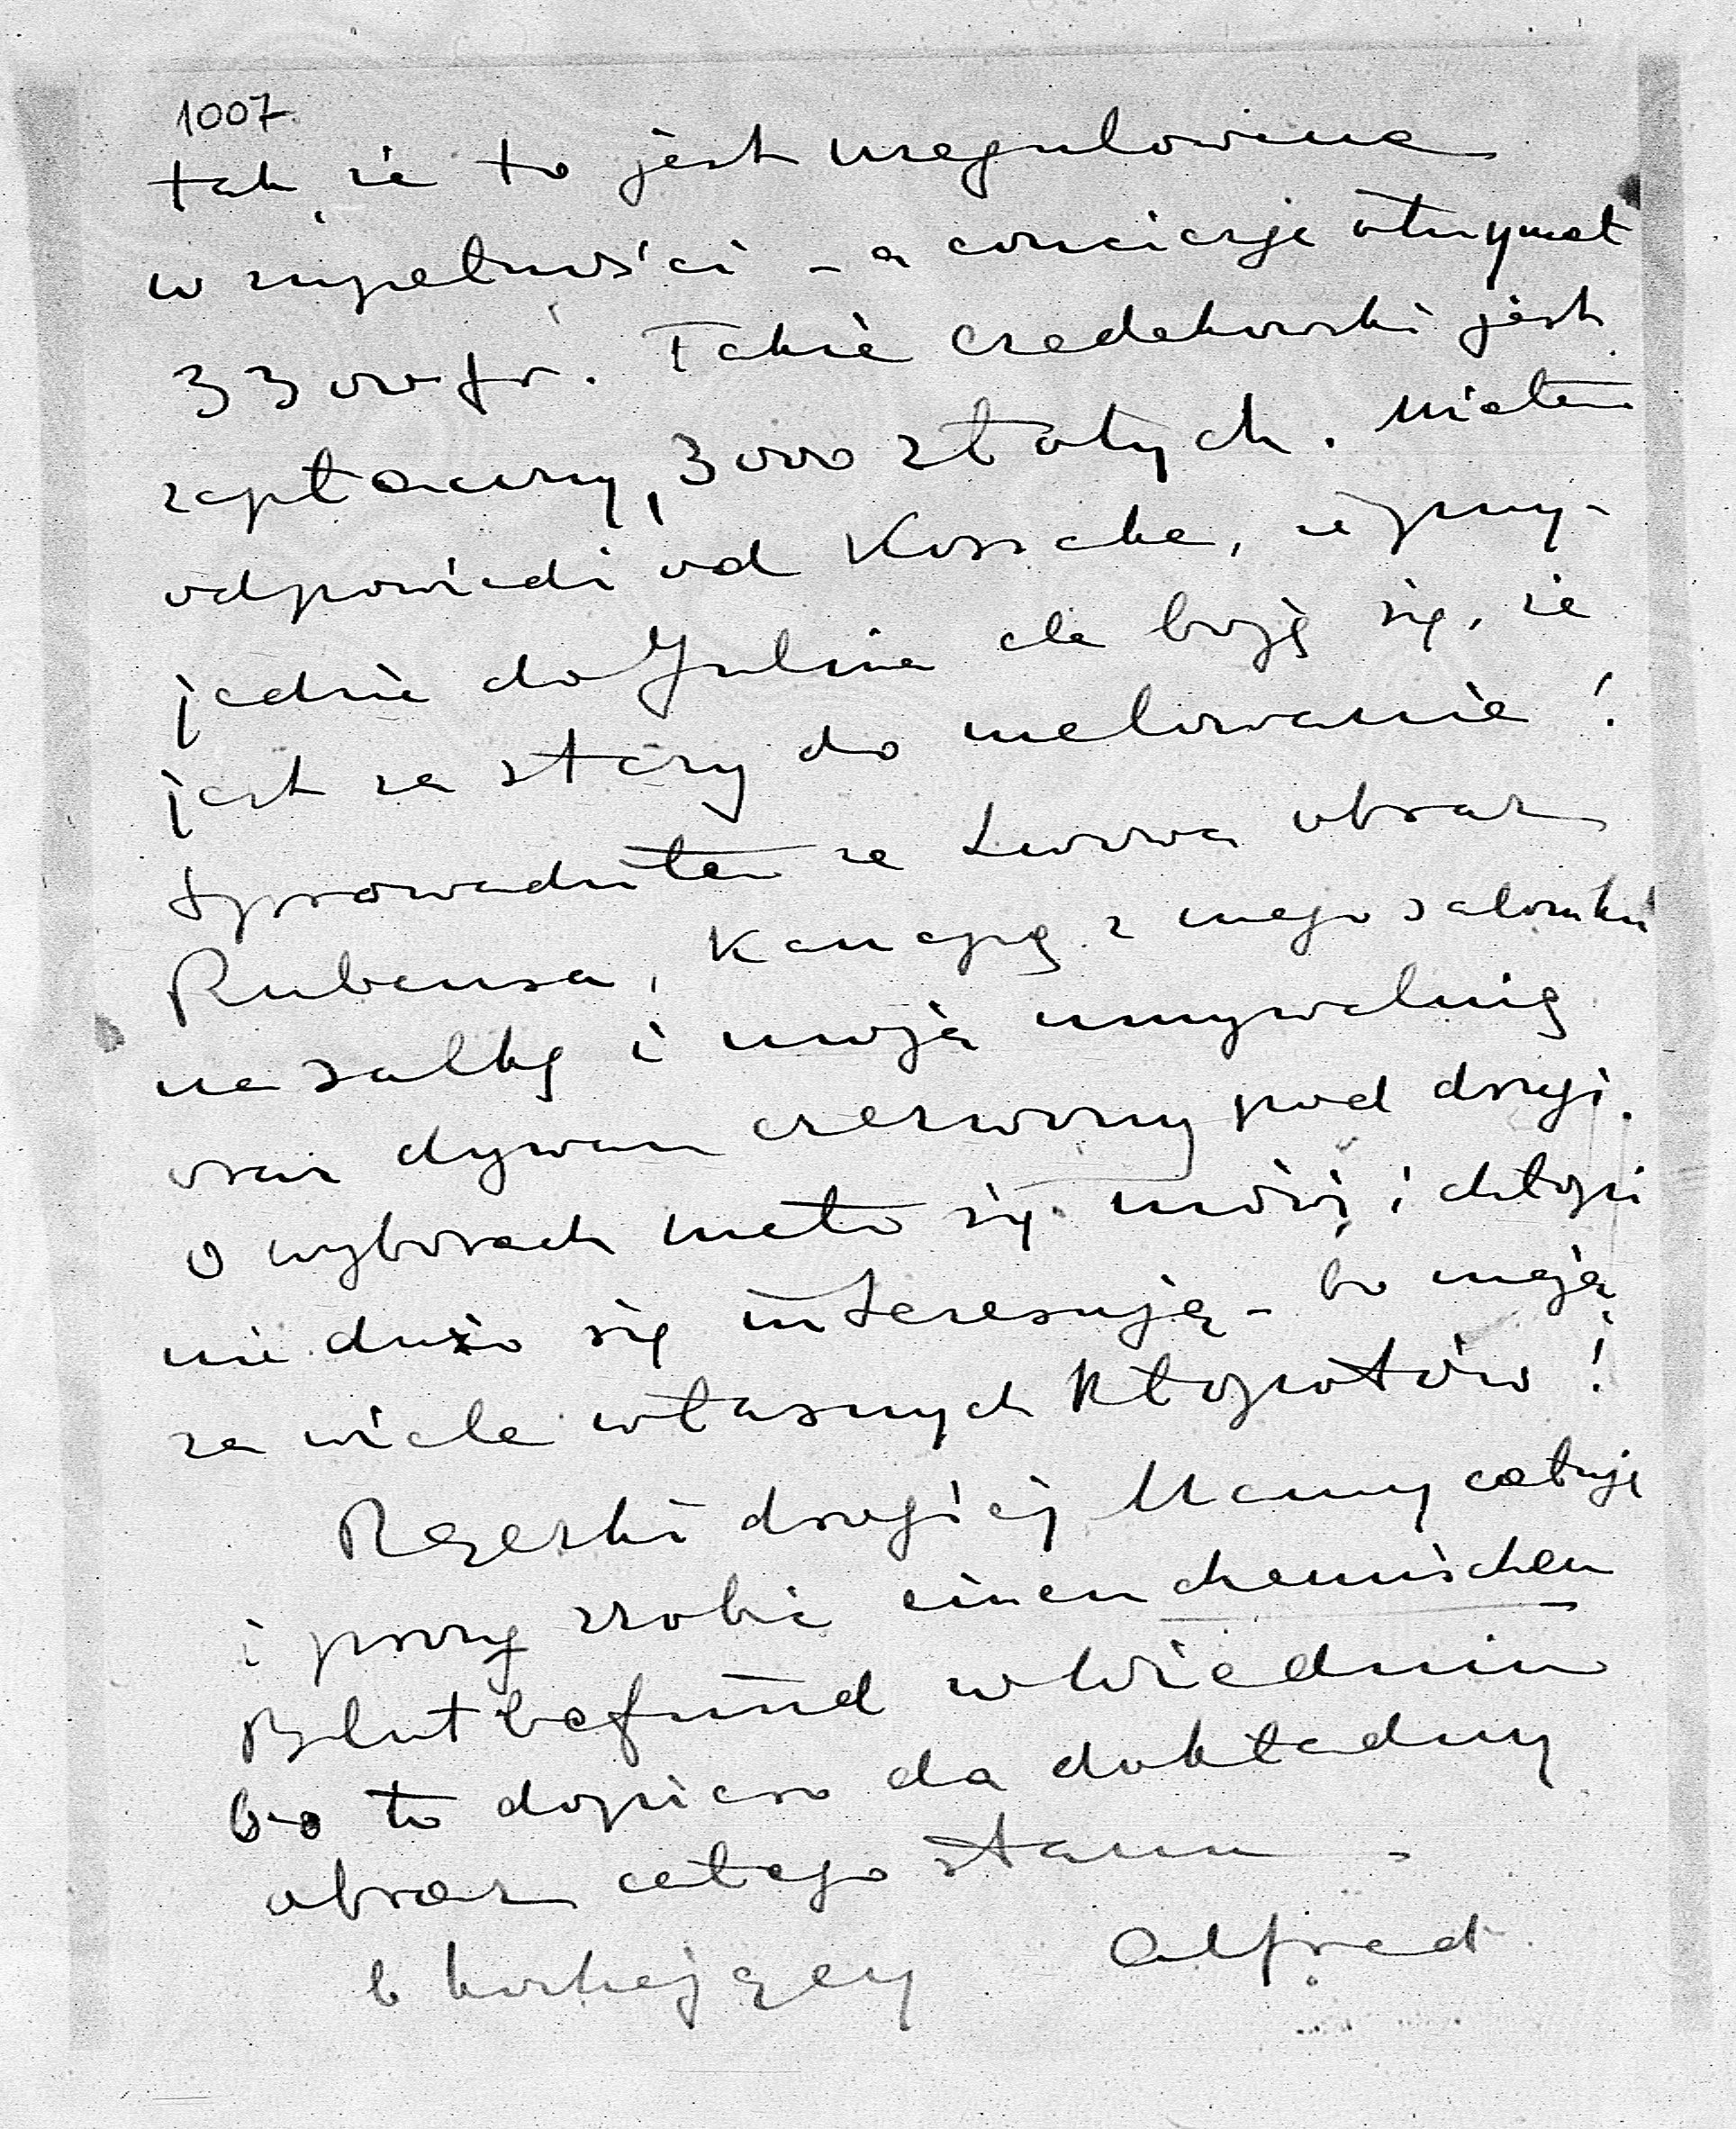 1007
tak że to jest uregulowane
w zupełności - a concierge otrzymał
3300 fr. Także Czedekowski jest
zapłacony, 3000 złotych. Miałem
odpowiedź od Kossaka, że przy-
jedzie do Julina ale boję się, że
jest za stary do malowania!
Sprowadziłem ze Lwowa obraz
Rubensa, kanapę z mego saloniku
na salkę i moją umywalnię
oraz dywan czerwony pod drugi.
O wyborach mało się mówi i chłopi
nie dużo się interesują - bo mają
za wiele własnych kłopotów!
Rączki drogiej Mamy całuję
i proszę zrobić einen chemischen
Blutbefund w Wiedniu
bo to dopiero da dokładny
obraz całego stanu -
b kochający Alfred